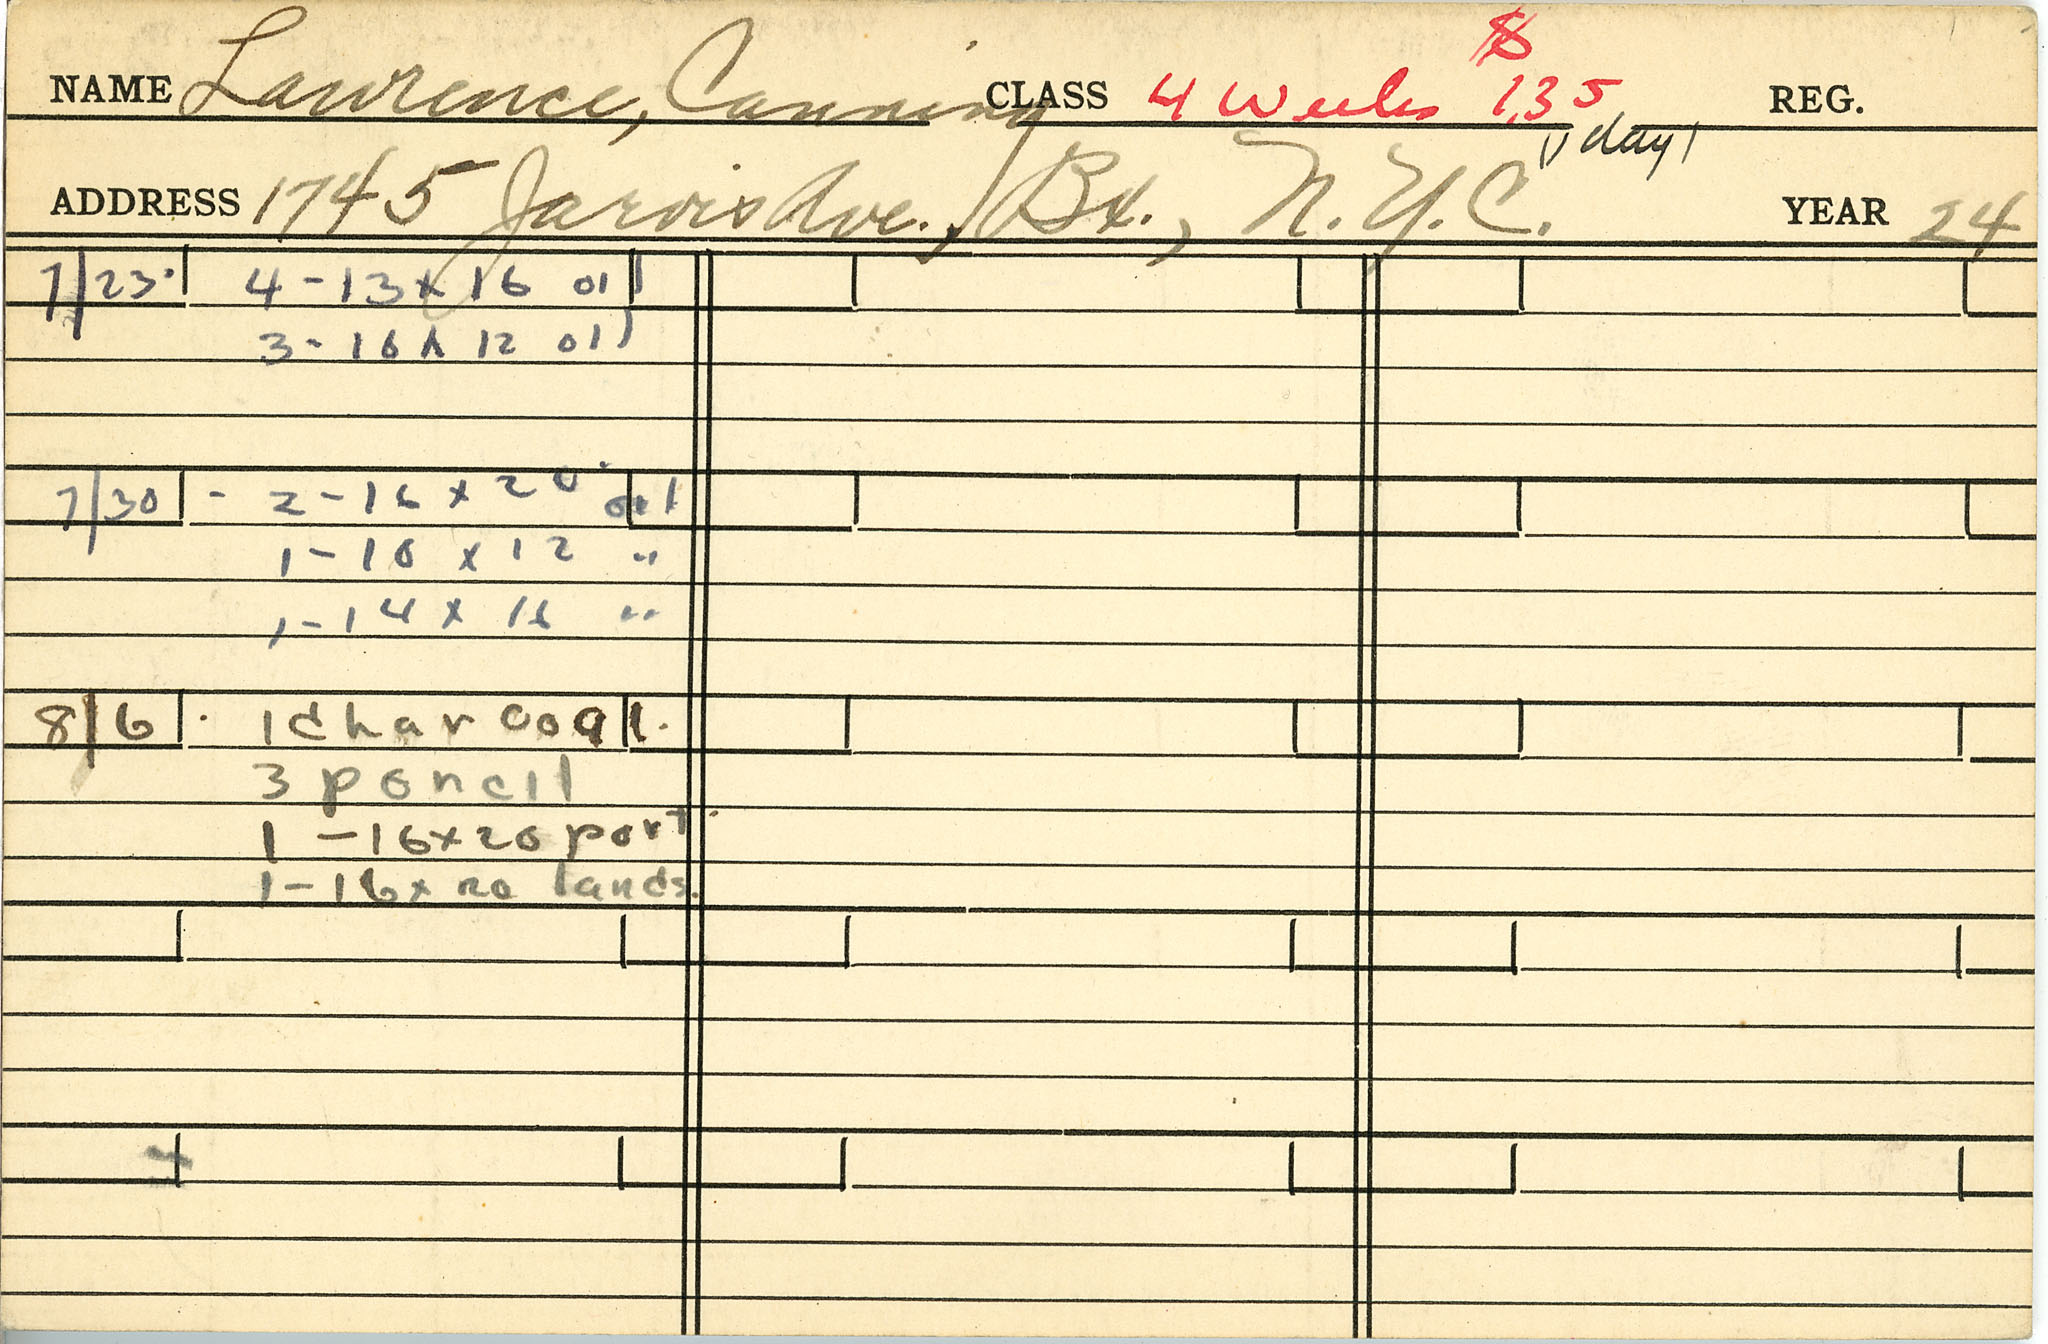 NAME Lawrence, Canning CLASS 4 Weeks $ 135 REG.
(1 day)
ADDRESS 1745 Jarvis Ave., Bx., N.Y.C. YEAR 24
7/23. 4-13x16 oil
3-16x12 oil
7/30 - 2-16x20 oil
1-16 x 12 "
1-14 x 16 "
8/6 . 1 charcoal.
3 pencil
1 - 16x20 port.
1-16x20 lands.